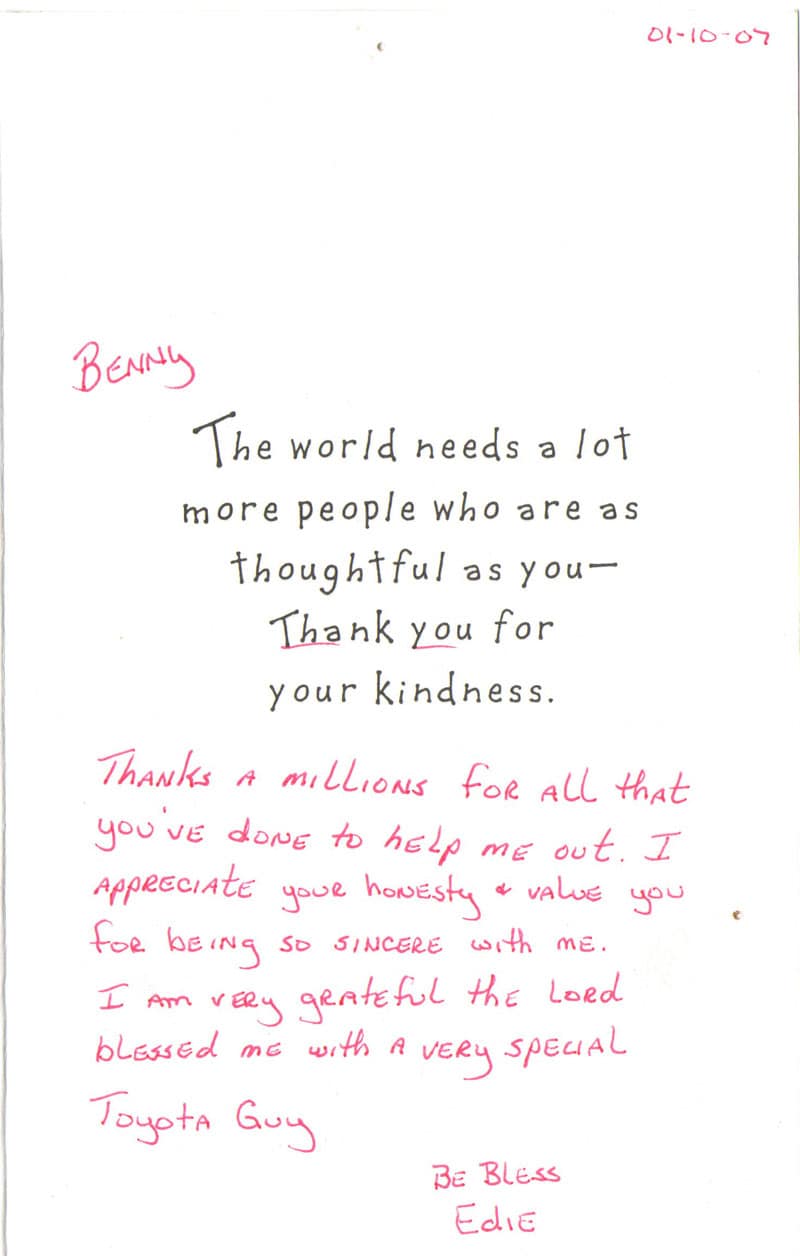 01-10-07
Benny
The world needs a lot
more people who are as
thoughtful as you—
Thank you for
your kindness.
Thanks a millions for all that
you've done to help me out. I
appreciate your honesty & value you
for being so sincere with me.
I am very grateful the Lord
blessed me with a very special
Toyota Guy
Be Bless
Edie